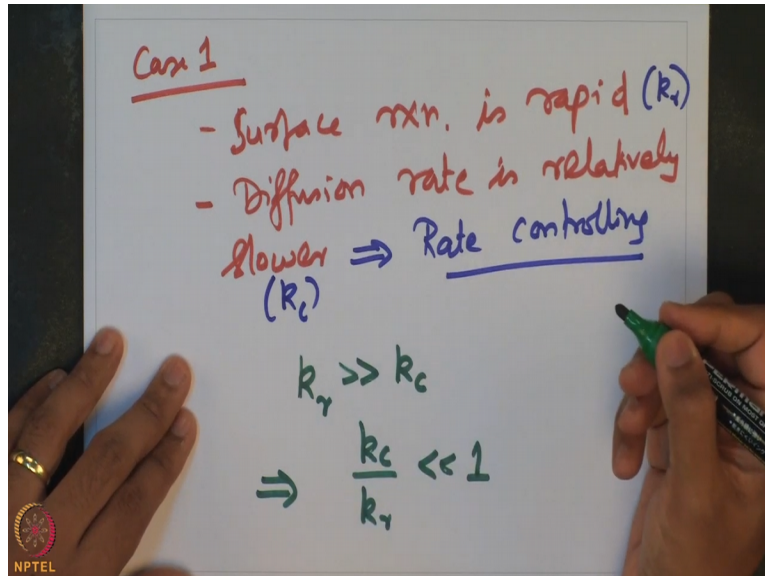 Case 1
- Surface rxn. is rapid (kᵣ)
- Diffusion rate is relatively
slower ⇒ Rate controlling
(k_c)
kᵣ >> k_c
⇒ k_c/kᵣ << 1
NPTEL